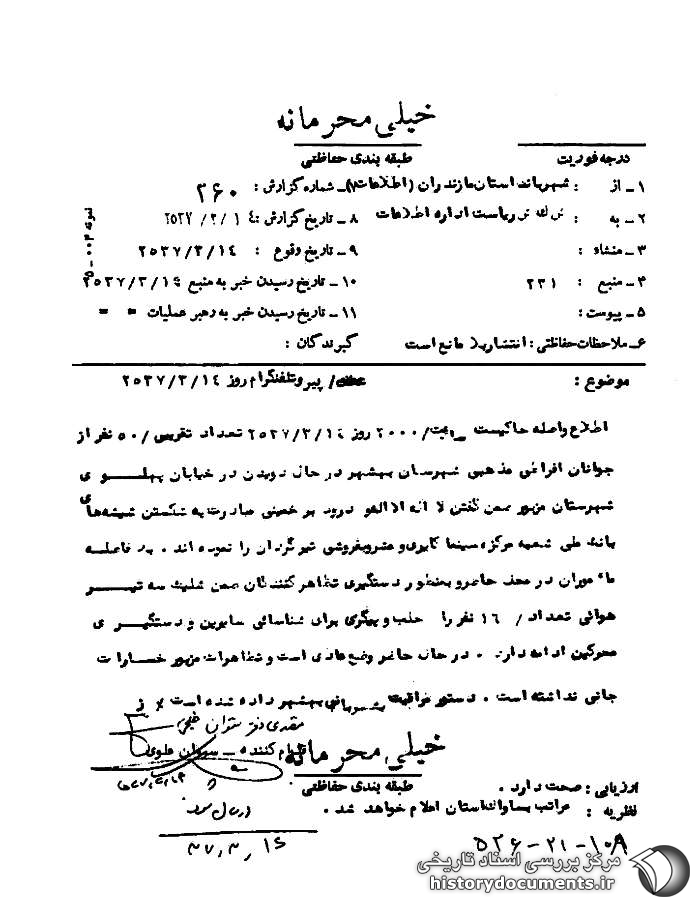 خیلی محرمانه
طبقه بندی حفاظتی
درجه فوریت
۱ـ از : شهربانی استان مازندران (اطلاعات)
شماره گزارش : ۲۶۰
۲ـ به : ریاست اداره اطلاعات
۸ ـ تاریخ گزارش : ۲۵۳۷/۳/۱۴
۳ـ منشاء :
۹ ـ تاریخ وقوع : ۲۵۳۷/۳/۱۴
۴ـ منبع : ۲۳۱
۱۰ ـ تاریخ رسیدن خبر به منبع ۲۵۳۷/۳/۱۴
۵ ـ پیوست :
۱۱ ـ تاریخ رسیدن خبر به رهبر عملیات = =
۶ـ ملاحظات حفاظتی : انتشار بلا مانع است
گیرندگان :
موضوع : پیرو تلفنگرام روز ۲۵۳۷/۳/۱۴
اطلاع واصله حاکیست ساعت/ ۲۰۰۰ روز ۲۵۳۷/۳/۱۴ تعداد تقریبی/ ۵۰ نفر از
جوانان افراطی مذهبی شهرستان بهشهر در حال دویدن در خیابان پهلوی
شهرستان مزبور ضمن گفتن لا اله الا الله و درود بر خمینی مبادرت به شکستن شیشه‌های
بانک ملی شعبه مرکزی سینما کاپری و مشروبفروشی شیرگردان را نموده اند . بلافاصله
مامورین در محل حاضر و بمنظور دستگیری تظاهرکنندگان ضمن شلیک سه تیر
هوائی تعداد / ۱۶ نفر را جلب و پیگیری برای شناسائی سایرین و دستگیری
محرکین ادامه دارد . در حال حاضر وضع عادی است و تظاهرات مزبور خسارات
جانی نداشته است . دستور مراقبت بشهربانی بهشهر داده شده است
اقدام کننده ـ ستوان علوی
خیلی محرمانه
طبقه بندی حفاظتی
ارزیابی : صحت دارد .
نظریه : مراتب بساواک استان اعلام خواهد شد .
ارسال شود
۳۷,۳,۱۶
۵۲۶-۲۱-۱۰۸
مرکز بررسی اسناد تاریخی
historydocuments.ir